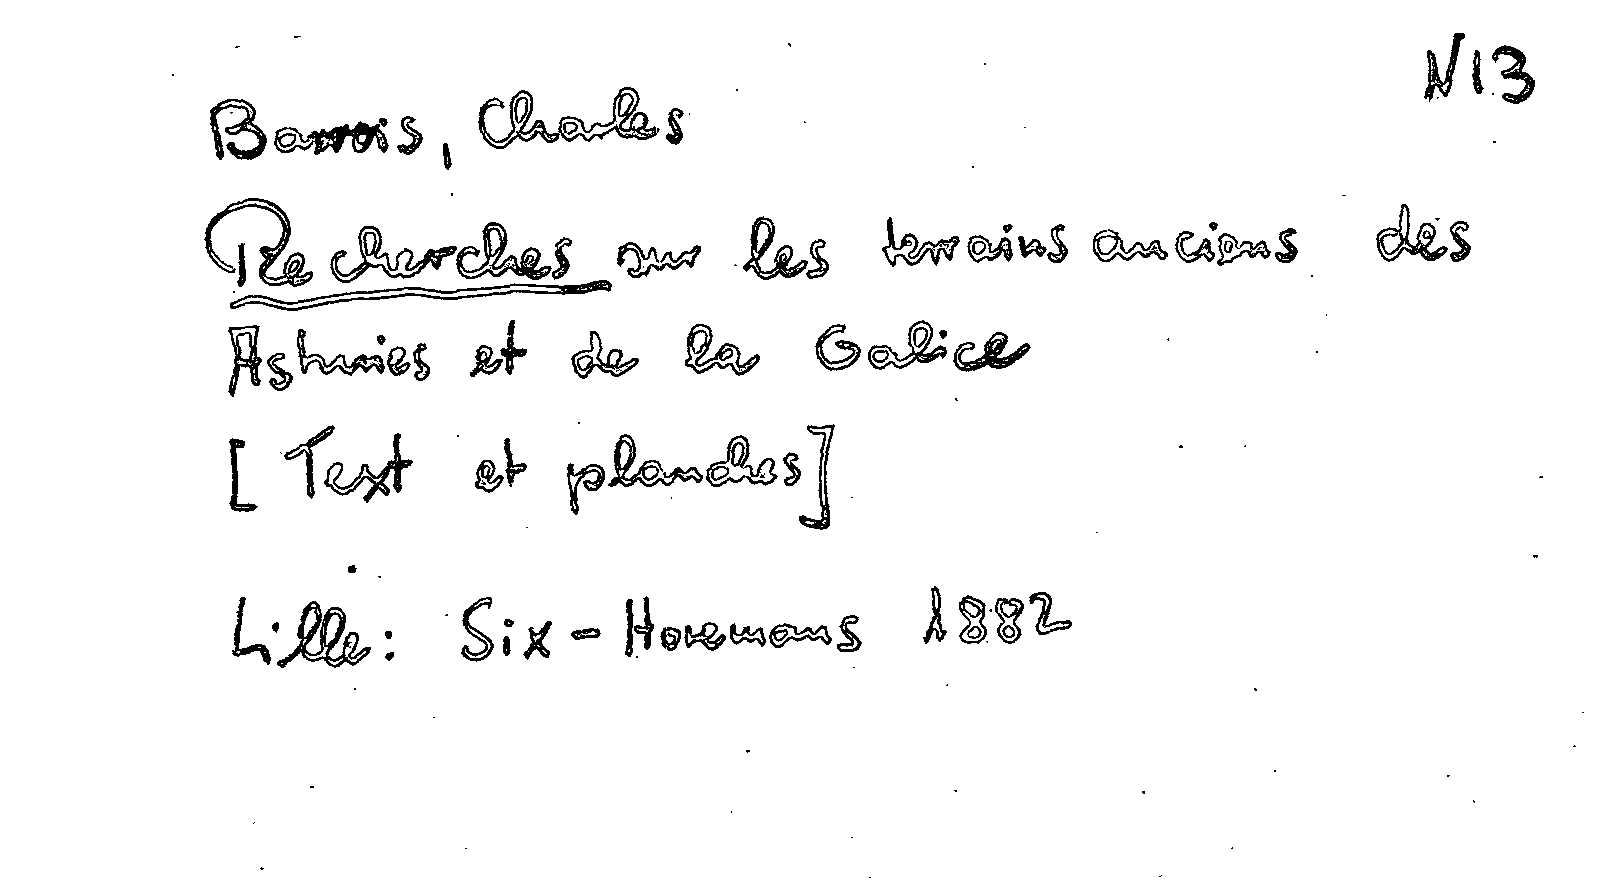 N13
Barrois, Charles
Recherches sur les terrains anciens des
Asturies et de la Galice
[Text et planches]
Lille: Six-Horemans 1882